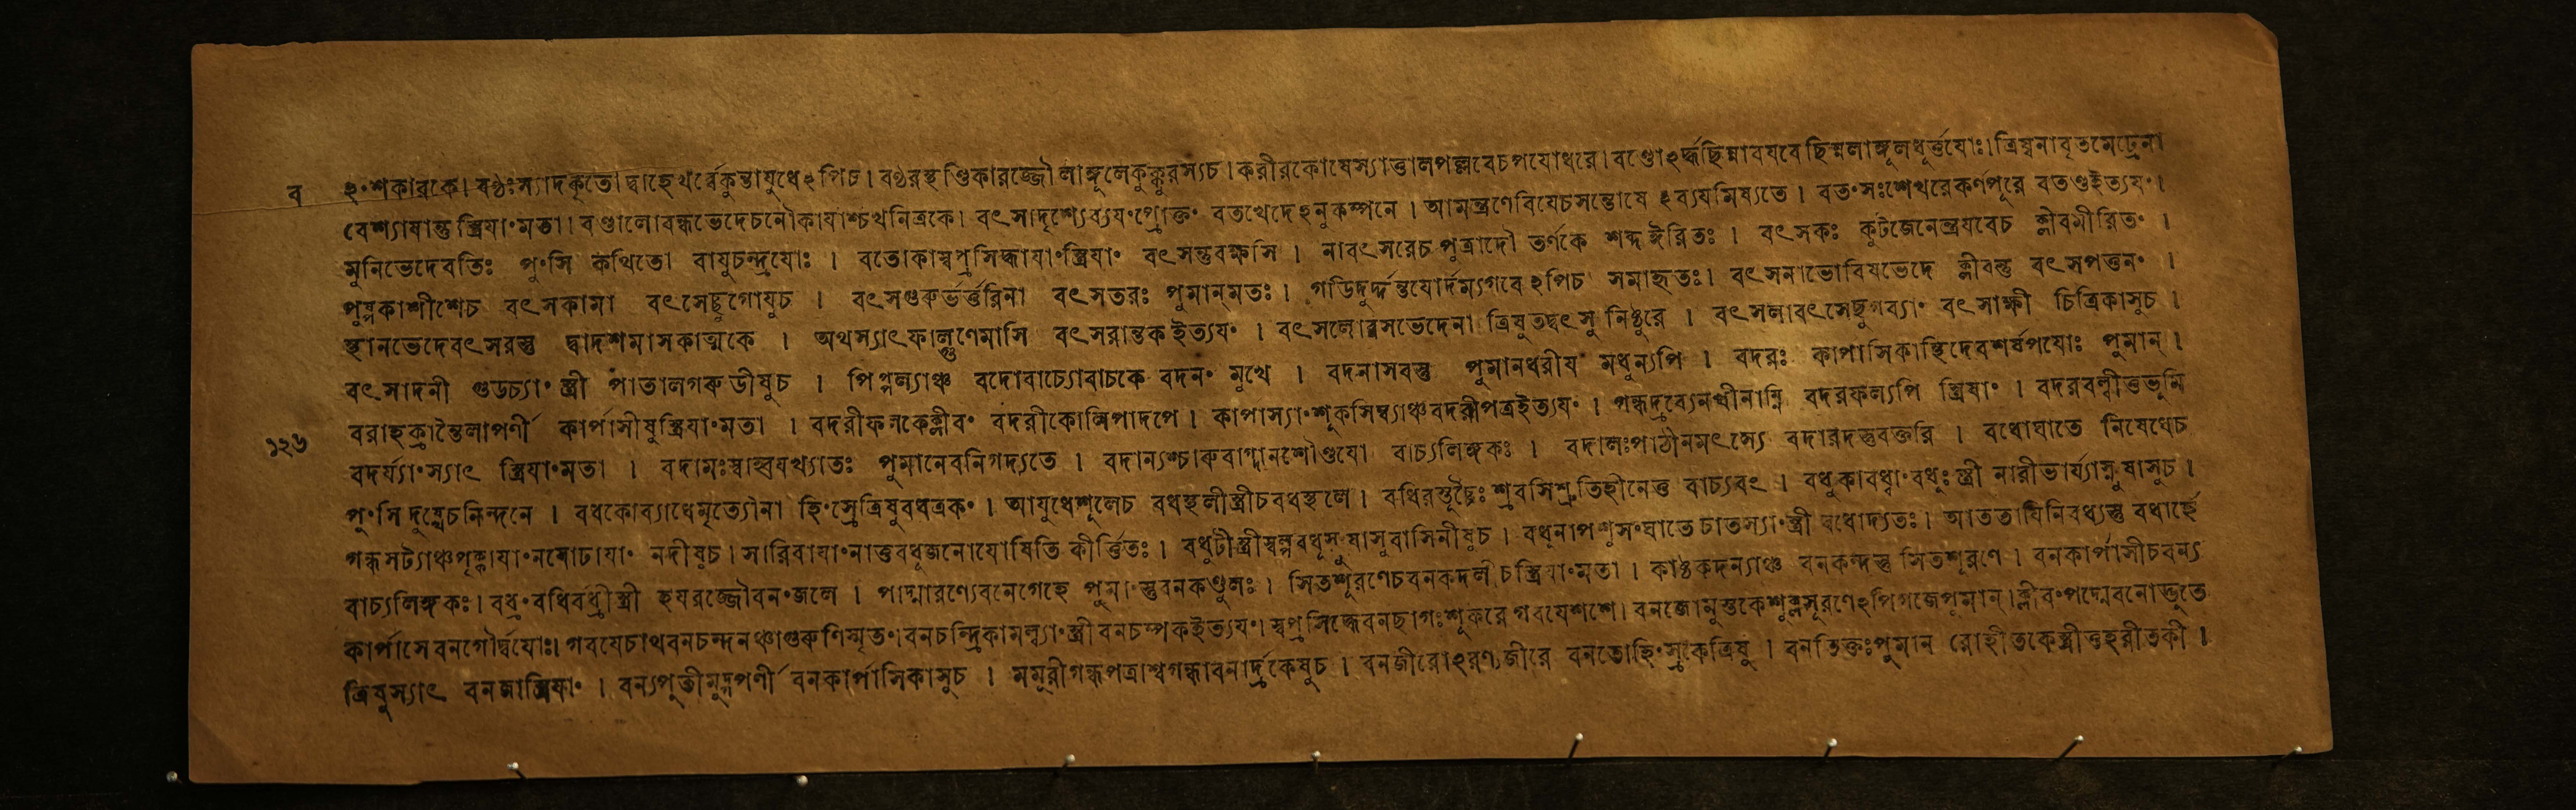 ব ২ংশকারকে। বণ্ঠঃস্যাদকৃতো দ্বাহেখর্ব্বেকুন্তাযুধেঽপিচ। বণ্ঠরস্থণ্ডিকারজ্জৌ লাঙ্গূলেকুক্কুরস্যচ। করীরকোষেস্যাত্তালপল্লবেচপযোধরে। বণ্ডোঽর্দ্ধছিন্নাবযবেছিন্নলাঙ্গূলধূর্ত্তযোঃ। ত্রিষ্বনাবৃতমেঢ্রেনা
বেশ্যাষান্তুস্ত্রিযাংমতা। বণ্ডালোবন্ধভেদেচনৌকাযাশ্চখনিত্রকে। বৎসাদৃশ্যেব্যযংপ্রোক্তং বতখেদেঽনুকম্পনে। আমন্ত্রণেবিযেচসন্তোষে ঽব্যযমিষ্যতে। বতংসঃশেখরেকর্ণপূরে বতণ্ডইত্যযং।
মুনিভেদেবতিঃ পুংসি কথিতো বাযুচন্দ্রযোঃ। বতোকাস্বপ্রসিদ্ধাযাংস্ত্রিযাং বৎসন্তুবক্ষসি। নাবৎসরেচপুত্রাদৌ তর্ণকে শব্দ ঈরিতঃ। বৎসকঃ কুটজেনেন্দ্রযবেচ ক্লীবমীরিতং।
পুষ্পকাশীশেচ বৎসকামা বৎসেচ্ছুগোযুচ। বৎসগুরুর্ভর্ত্তরিনা বৎসতরঃ পুমান্‌মতঃ। গডিদুর্দ্দন্তযোর্দম্যগবেঽপিচ সমাহৃতঃ। বৎসনাভোবিষভেদে ক্লীবন্তু বৎসপত্তনং।
স্থানভেদেবৎসরস্তু দ্বাদশমাসকাত্মকে। অথস্যাৎফাল্গুণেমাসি বৎসরান্তকইত্যযং। বৎসলোরসভেদেনা ত্রিষুতদ্বৎসু নিষ্ঠুরে। বৎসলাবৎসেচ্ছুগব্যাং বৎসাক্ষী চিত্রিকাসুচ।
বৎসাদনী গুডচ্যাং স্ত্রী পাতালগরুডীষুচ। পিপ্পল্যাঞ্চ বদোবাচ্যোবাচকে বদনং মুখে। বদনাসবস্তু পুমানধরীয মধুন্যপি। বদরঃ কার্পাসিকাস্থিদেবশর্ষপযোঃ পুমান্।
বরাহক্রান্তৈলাপর্ণী কার্পাসীষুস্ত্রিযাংমতা। বদরীফলকেক্লীবং বদরীকোলিপাদপে। কার্পাস্যাংশূকসিম্ব্যাঞ্চবদরীপত্রইত্যযং। গন্ধদ্রব্যেনখীনাম্নি বদরফল্যপি স্ত্রিযাং। বদরবল্লীতুভূমি
১২৬ বদর্য্যাংস্যাৎ স্ত্রিযাংমতা। বদামঃস্বাহ্বযখ্যাতঃ পুমানেবনিগদ্যতে। বদান্যশ্চারুবাগ্দানশৌণ্ডযো বাচ্যলিঙ্গকঃ। বদালঃপাঠীনমৎস্যে বদাবদস্তুবক্তরি। বধোঘাতে নিষেধেচ
পুংসি দুষ্টেচনিন্দনে। বধকোব্যাধেমৃত্যৌনা হিংস্রেত্রিষুবধত্রকং। আযুধেশূলেচ বধস্থলীস্ত্রীচবধস্থলে। বধিরস্তূচ্চৈঃশ্রবসিশ্রুতিহীনেতু বাচ্যবৎ। বধুকাবধ্বাংবধূঃস্ত্রী নারীভার্য্যাস্নুষাসুচ।
গন্ধসট্যাঞ্চপৃক্কাযাংনবোঢাযাং নদীষুচ। সারিবাযাংনাতুবধূজনোযোষিতি কীর্ত্তিতঃ। বধুটীস্ত্রীস্বল্পবধূস্নুষাসুবাসিনীষুচ। বধূনাপশুসংঘাতে চাতস্যাংস্ত্রী বধোদ্যতঃ। আততাযিনিবধ্যস্তু বধার্হে
বাচ্যলিঙ্গকঃ। বধ্রংবধিবর্ধ্রীস্ত্রী হযরজ্জৌবনংজলে। পাদ্মারণ্যেবনেগেহে পুমাংস্তুবনকণ্ডুলঃ। সিতশূরণেচবনকদলী চস্ত্রিযাংমতা। কাষ্ঠকদন্যাঞ্চ বনকন্দস্তু সিতশূরণে। বনকার্পাসীচবন্য
কার্পাসেবনগৌর্দ্বযোঃ। গবযেচাথবনচন্দনঞ্চাগুরুণিস্মৃতং। বনচন্দ্রিকামল্ল্যাংস্ত্রীবনচম্পকইত্যযং। স্বপ্রসিদ্ধেবনছাগঃশূকরে গবযেশশে। বনজোমুস্তকেশূক্লসূরণেঽপিগজেপুমান্। ক্লীবংপদ্মেবনোদ্ভুতে
ত্রিষুস্যাৎ বনজাস্ত্রিযাং। বন্যপুতীমুদ্গপর্ণী বনকার্পাসিকাসুচ। মসূরীগন্ধপত্রাশ্বগন্ধাবনার্দ্রকেষুচ। বনজীরোঽরণ্যজীরে বনতোহিংস্রকেত্রিষু। বনতিক্তঃপুমান রোহীতকেস্ত্রীতুহরীতকী।